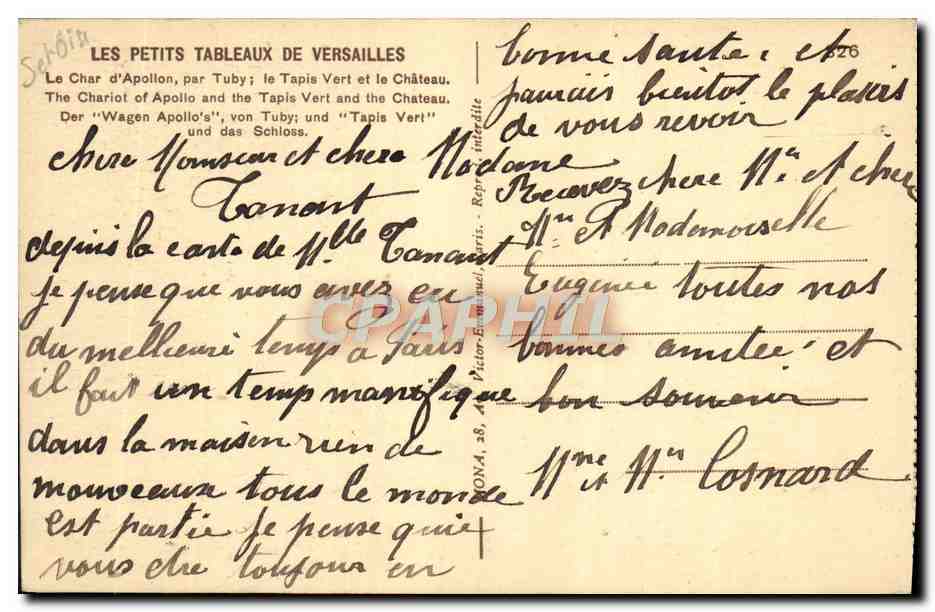 LES PETITS TABLEAUX DE VERSAILLES
Le Char d'Apollon, par Tuby; le Tapis Vert et le Château.
The Chariot of Apollo and the Tapis Vert and the Chateau.
Der "Wagen Apollo's", von Tuby; und "Tapis Vert"
und das Schloss.
chere Monsieur et chere Madame
Tanant
depuis la carte de Mlle Tanant
je pense que vous avez eu
du meilleure temps a Paris
il fait un temp manifique
dans la maisen rien de
nouveaux tous le monde
est partie je pense que
vous etre toujour en
bonne sante, et
bientot le plasirs
de vous revoir
Recevez chere Mr et chere
Mme et Mademoiselle
Eugénie toutes nos
bonnes amitee et
bon souvenir
Mme et Mr Cosnard
326
Victor-Emmanuel, Paris. - Repr. interdite
CPAPHIL